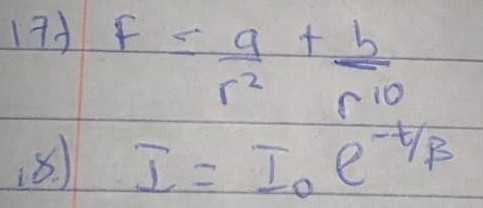 17) F = a/r² + b/r¹⁰
18.) I = I₀ e^(-t/β)